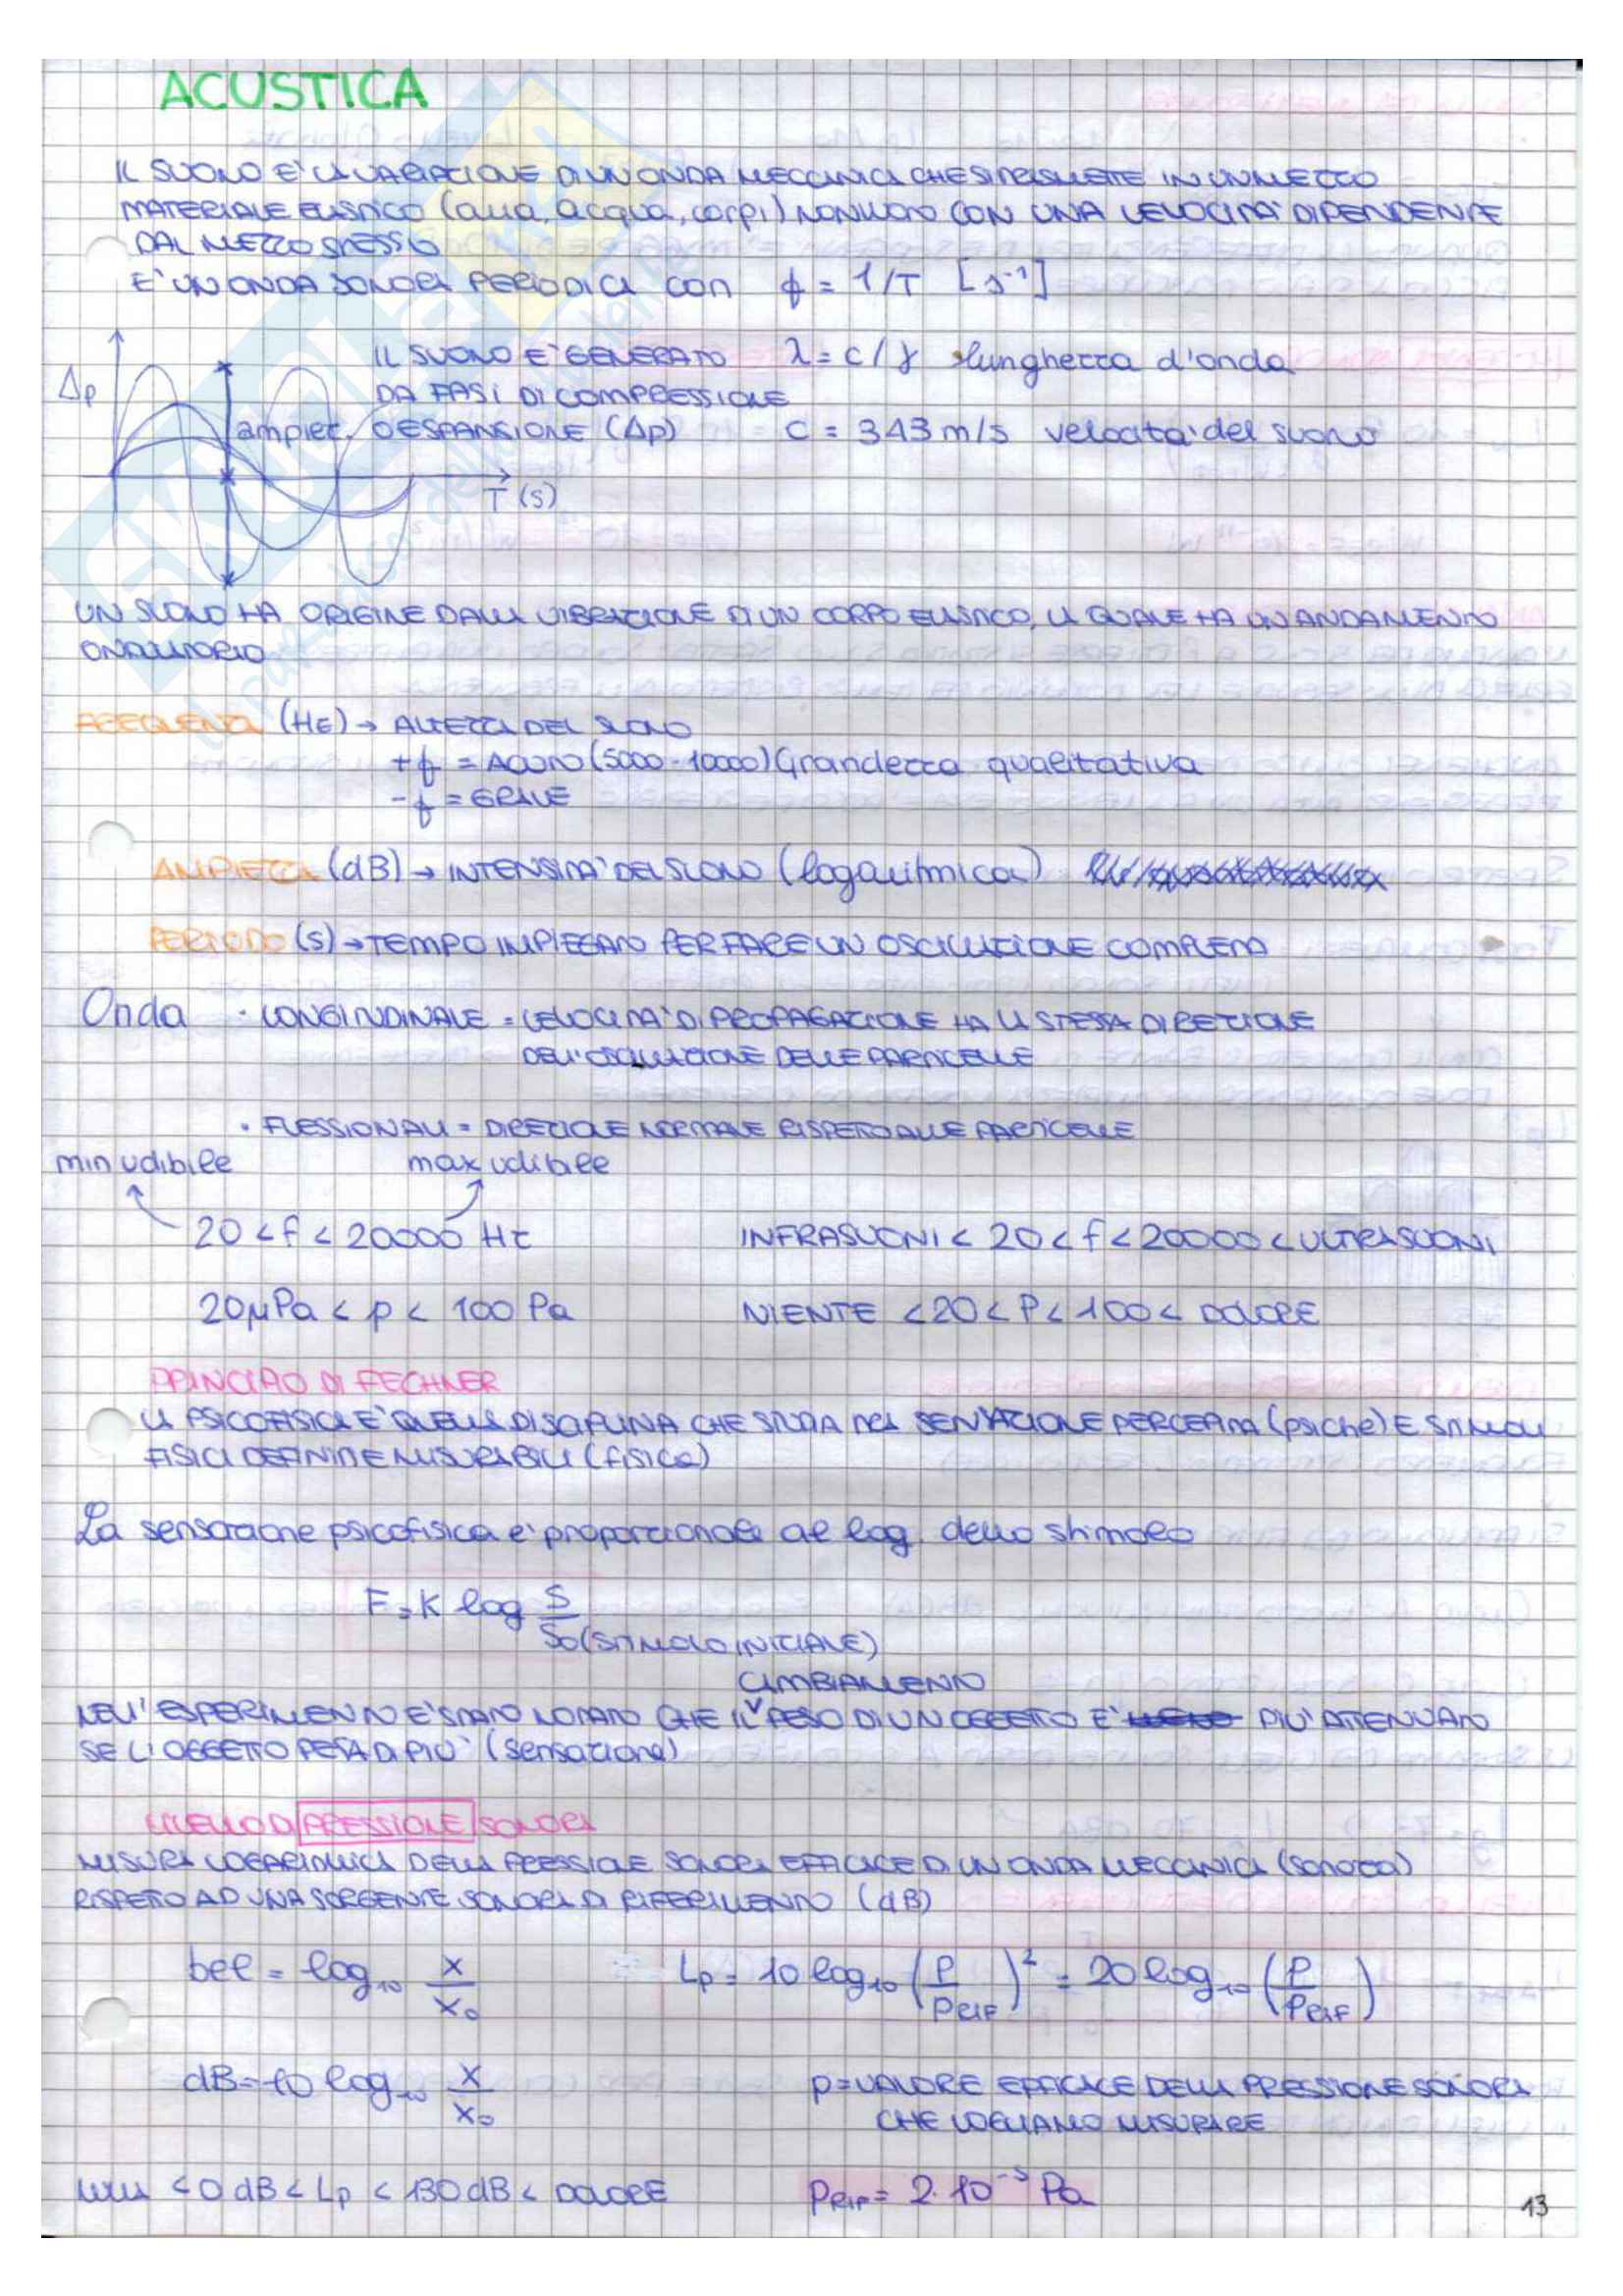 ACUSTICA
IL SUONO E' LA VARIAZIONE DI UN ONDA MECCANICA CHE SI TRASMETTE IN UN MEZZO
MATERIALE ELASTICO (aria, acqua, corpi) NON VUOTO CON UNA VELOCITA' DIPENDENTE
DAL MEZZO STESSO
E' UN ONDA SONORA PERIODICA con f = 1/T [s⁻¹]
IL SUONO E' GENERATO λ = c/f lunghezza d'onda
Δp DA FASI DI COMPRESSIONE
ampiez. O ESPANSIONE (Δp) c = 343 m/s velocita' del suono
T (s)
UN SUONO HA ORIGINE DALLA VIBRAZIONE DI UN CORPO ELASTICO, LA QUALE HA UN ANDAMENTO
ONDULATORIO
FREQUENZA (Hz) → ALTEZZA DEL SUONO
+f = ACUTO (5000-10000) Grandezza qualitativa
-f = GRAVE
AMPIEZZA (dB) → INTENSITA' DEL SUONO (logaritmica)
PERIODO (s) → TEMPO IMPIEGATO PER FARE UN OSCILLAZIONE COMPLETA
Onda · LONGITUDINALE = VELOCITA' DI PROPAGAZIONE HA LA STESSA DIREZIONE
DELL'OSCILLAZIONE DELLE PARTICELLE
· FLESSIONALI = DIREZIONE NORMALE RISPETTO ALLE PARTICELLE
min udibile max udibile
20 < f < 20000 Hz INFRASUONI < 20 < f < 20000 < ULTRASUONI
20μPa < p < 100 Pa NIENTE < 20 < P < 100 < DOLORE
PRINCIPIO DI FECHNER
LA PSICOFISICA E' QUELLA DISCIPLINA CHE STUDIA SENSAZIONE PERCEPITA (psiche) E STIMOLI
FISICI DEFINITI E MISURABILI (fisica)
La sensazione psicofisica e' proporzionale al log. dello stimolo
F = K log S/S0 (STIMOLO INIZIALE)
CAMBIAMENTO
NELL'ESPERIMENTO E' STATO NOTATO CHE IL PESO DI UN OGGETTO E' PIU' ATTENUATO
SE L'OGGETTO PESA DI PIU' (sensazione)
LIVELLO DI PRESSIONE SONORA
MISURA LOGARITMICA DELLA PRESSIONE SONORA EFFICACE DI UN ONDA MECCANICA (sonora)
RISPETTO AD UNA SORGENTE SONORA DI RIFERIMENTO (dB)
bel = log₁₀ x/x₀ Lp = 10 log₁₀ (P/PRIF)² = 20 log₁₀ (P/PRIF)
dB = 10 log₁₀ x/x₀ p = VALORE EFFICACE DELLA PRESSIONE SONORA
CHE VOGLIAMO MISURARE
< 0 dB < Lp < 130 dB < DOLORE PRIF = 2·10⁻⁵ Pa
13